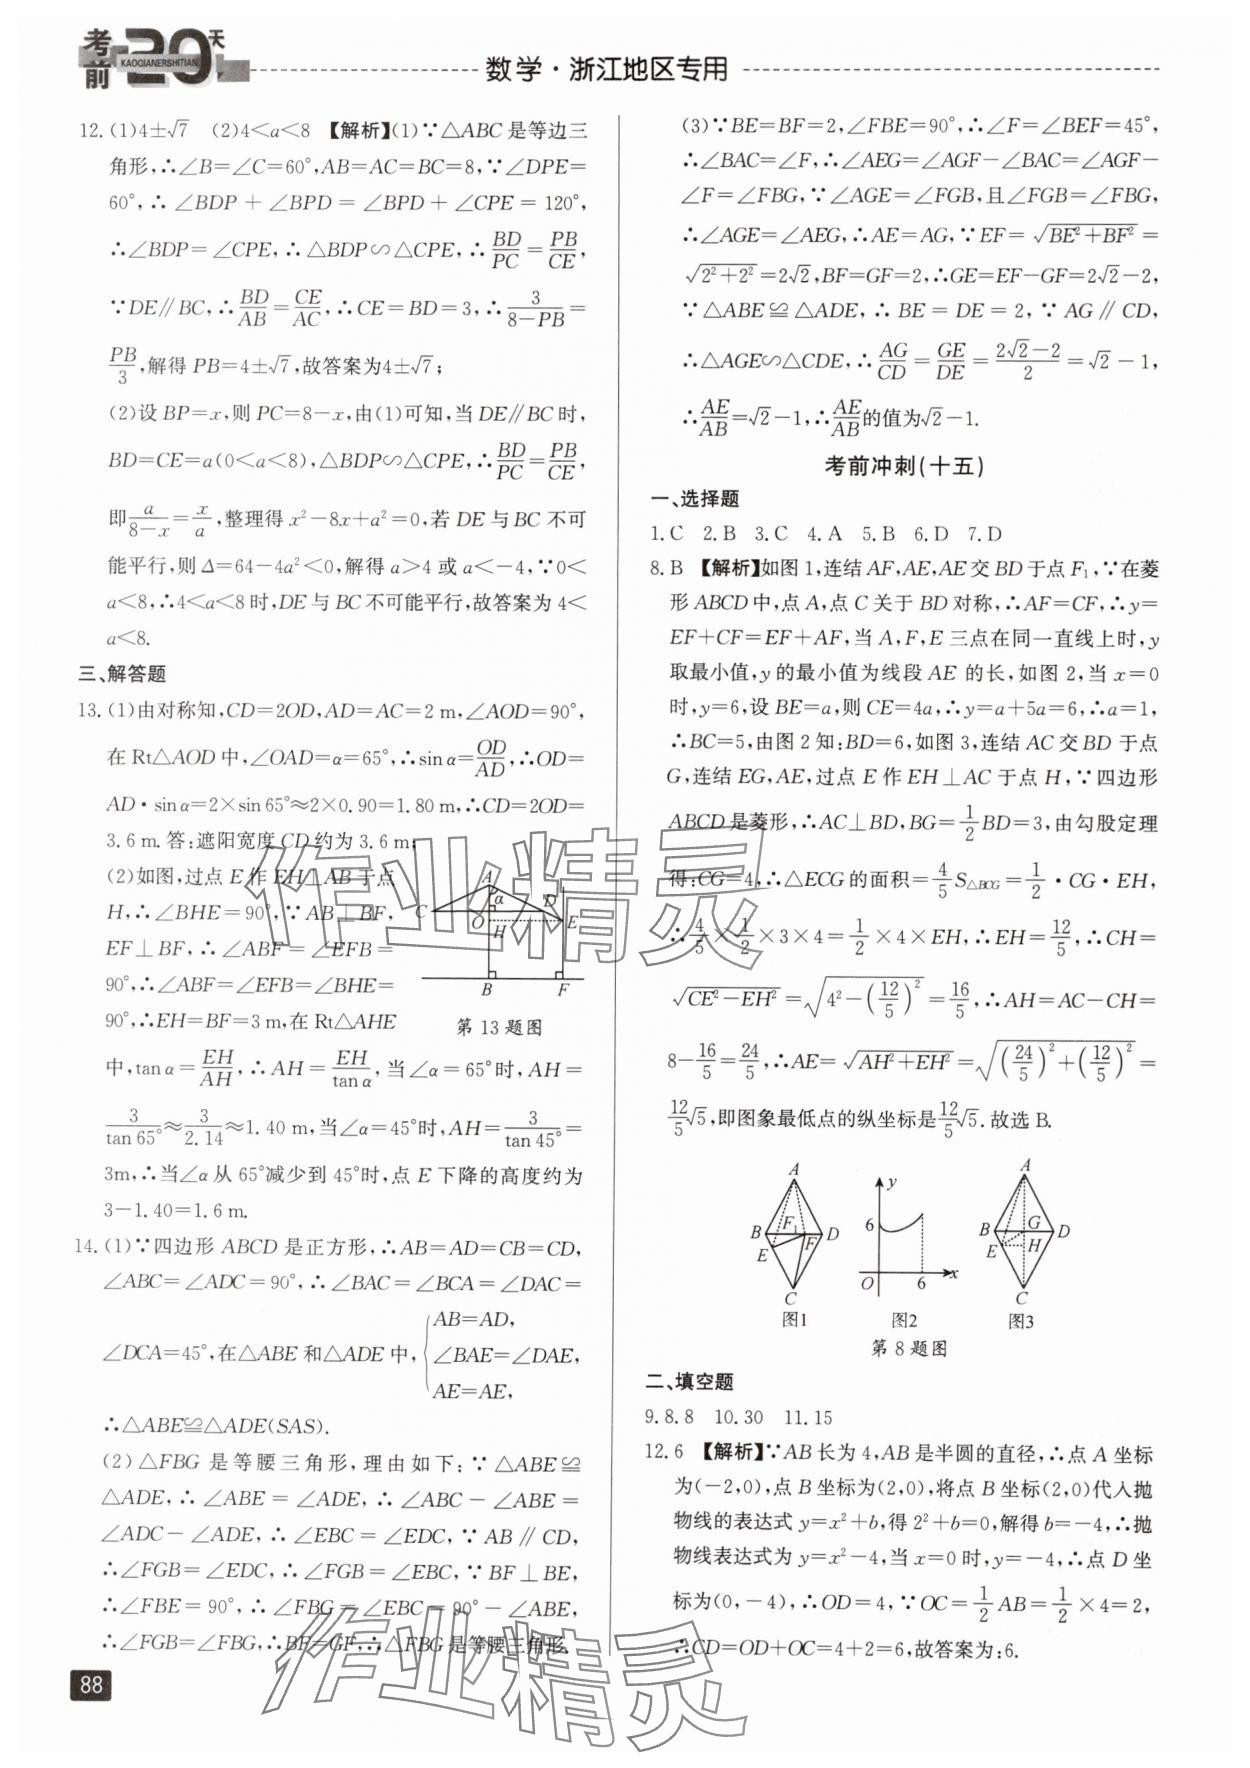 考前20天
KAOQIANERSHITIAN
数学·浙江地区专用
12.(1)4±√7 (2)4<a<8 【解析】(1)∵△ABC是等边三
角形,∴∠B=∠C=60°,AB=AC=BC=8,∵∠DPE=
60°,∴∠BDP+∠BPD=∠BPD+∠CPE=120°,
∴∠BDP=∠CPE,∴△BDP∽△CPE,∴BD/PC=PB/CE,
∵DE∥BC,∴BD/AB=CE/AC,∴CE=BD=3,∴3/(8-PB)=
PB/3,解得PB=4±√7,故答案为4±√7;
(2)设BP=x,则PC=8-x,由(1)可知,当DE∥BC时,
BD=CE=a(0<a<8),△BDP∽△CPE,∴BD/PC=PB/CE,
即a/(8-x)=x/a,整理得x²-8x+a²=0,若DE与BC不可
能平行,则Δ=64-4a²<0,解得a>4或a<-4,∵0<
a<8,∴4<a<8时,DE与BC不可能平行,故答案为4<
a<8.
三、解答题
13.(1)由对称知,CD=2OD,AD=AC=2 m,∠AOD=90°,
在Rt△AOD中,∠OAD=α=65°,∴sin α=OD/AD,∴OD=
AD·sin α=2×sin 65°≈2×0.90=1.80 m,∴CD=2OD=
3.6 m.答:遮阳宽度CD约为3.6 m;
(2)如图,过点E作EH⊥AB于点
H,∴∠BHE=90°,∵AB⊥BF,
EF⊥BF,∴∠ABF=∠EFB=
90°,∴∠ABF=∠EFB=∠BHE=
90°,∴EH=BF=3 m,在Rt△AHE
A
α
C
D
O
H
E
B
F
第13题图
中,tan α=EH/AH,∴AH=EH/tan α,当∠α=65°时,AH=
3/tan 65°≈3/2.14≈1.40 m,当∠α=45°时,AH=3/tan 45°=
3m,∴当∠α从65°减少到45°时,点E下降的高度约为
3-1.40=1.6 m.
14.(1)∵四边形ABCD是正方形,∴AB=AD=CB=CD,
∠ABC=∠ADC=90°,∴∠BAC=∠BCA=∠DAC=
∠DCA=45°,在△ABE和△ADE中,{AB=AD,
∠BAE=∠DAE,
AE=AE,
∴△ABE≌△ADE(SAS).
(2)△FBG是等腰三角形,理由如下:∵△ABE≌
△ADE,∴∠ABE=∠ADE,∴∠ABC-∠ABE=
∠ADC-∠ADE,∴∠EBC=∠EDC,∵AB∥CD,
∴∠FGB=∠EDC,∴∠FGB=∠EBC,∵BF⊥BE,
∴∠FBE=90°,∴∠FBG=∠EBC=90°-∠ABE,
∴∠FGB=∠FBG,∴BF=GF,∴△FBG是等腰三角形.
88
(3)∵BE=BF=2,∠FBE=90°,∴∠F=∠BEF=45°,
∴∠BAC=∠F,∴∠AEG=∠AGF-∠BAC=∠AGF-
∠F=∠FBG,∵∠AGE=∠FGB,且∠FGB=∠FBG,
∴∠AGE=∠AEG,∴AE=AG,∵EF=√(BE²+BF²)=
√(2²+2²)=2√2,BF=GF=2,∴GE=EF-GF=2√2-2,
∵△ABE≌△ADE,∴BE=DE=2,∵AG∥CD,
∴△AGE∽△CDE,∴AG/CD=GE/DE=(2√2-2)/2=√2-1,
∴AE/AB=√2-1,∴AE/AB的值为√2-1.
考前冲刺(十五)
一、选择题
1.C 2.B 3.C 4.A 5.B 6.D 7.D
8.B 【解析】如图1,连结AF,AE,AE交BD于点F₁,∵在菱
形ABCD中,点A,点C关于BD对称,∴AF=CF,∴y=
EF+CF=EF+AF,当A,F,E三点在同一直线上时,y
取最小值,y的最小值为线段AE的长,如图2,当x=0
时,y=6,设BE=a,则CE=4a,∴y=a+5a=6,∴a=1,
∴BC=5,由图2知:BD=6,如图3,连结AC交BD于点
G,连结EG,AE,过点E作EH⊥AC于点H,∵四边形
ABCD是菱形,∴AC⊥BD,BG=1/2BD=3,由勾股定理
得:CG=4,∴△ECG的面积=4/5S△BCG=1/2·CG·EH,
∴4/5×1/2×3×4=1/2×4×EH,∴EH=12/5,∴CH=
√(CE²-EH²)=√(4²-(12/5)²)=16/5,∴AH=AC-CH=
8-16/5=24/5,∴AE=√(AH²+EH²)=√((24/5)²+(12/5)²)=
12/5√5,即图象最低点的纵坐标是12/5√5.故选B.
A
B
F₁
D
E
F
C
图1
y
6
O
6
x
图2
A
B
G
D
E
H
C
图3
第8题图
二、填空题
9.8.8 10.30 11.15
12.6 【解析】∵AB长为4,AB是半圆的直径,∴点A坐标
为(-2,0),点B坐标为(2,0),将点B坐标(2,0)代入抛
物线的表达式y=x²+b,得2²+b=0,解得b=-4,∴抛
物线表达式为y=x²-4,当x=0时,y=-4,∴点D坐
标为(0,-4),∴OD=4,∵OC=1/2AB=1/2×4=2,
∴CD=OD+OC=4+2=6,故答案为:6.
作业精灵
作业精灵